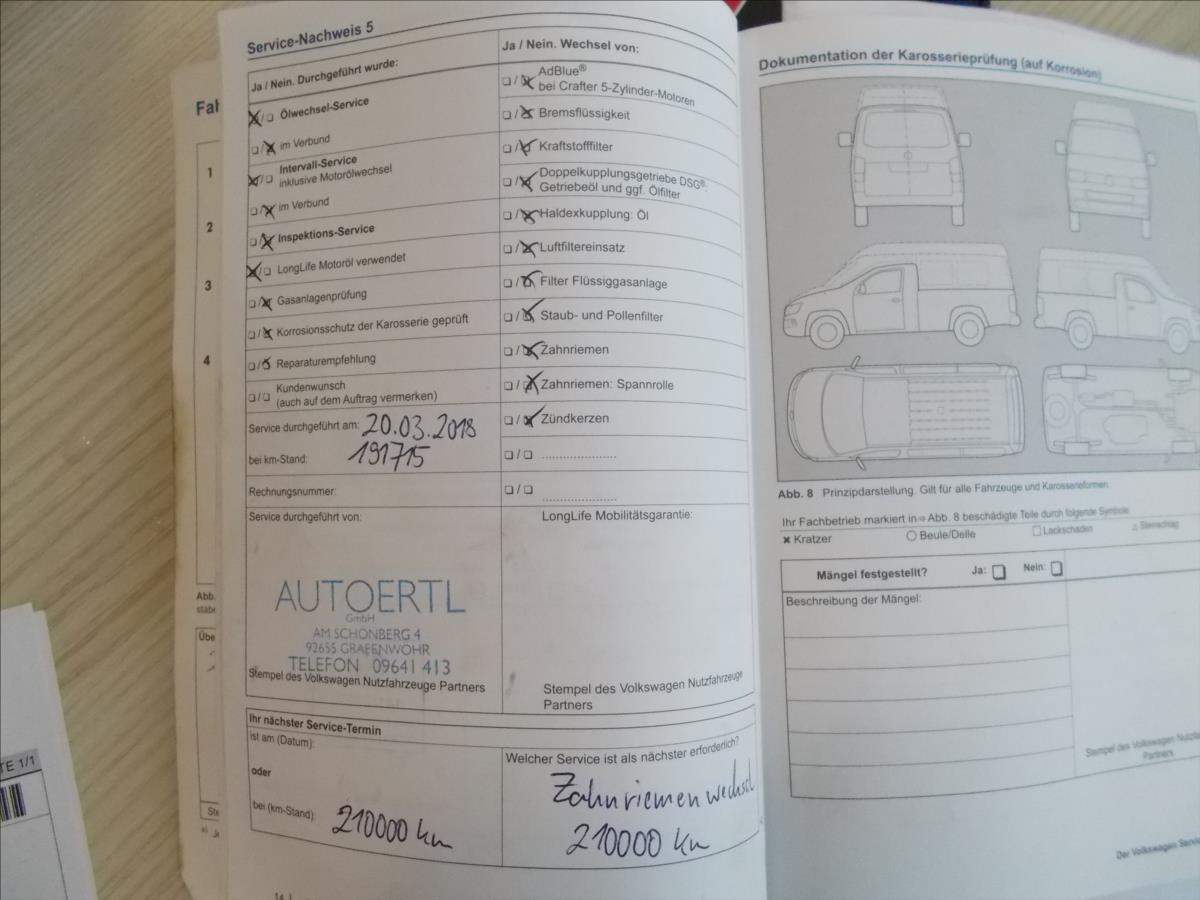 Service-Nachweis 5
Ja / Nein. Durchgeführt wurde:
Ölwechsel-Service
im Verbund
Intervall-Service
inklusive Motorölwechsel
im Verbund
Inspektions-Service
LongLife Motoröl verwendet
Gasanlagenprüfung
Korrosionsschutz der Karosserie geprüft
Reparaturempfehlung
Kundenwunsch
(auch auf dem Auftrag vermerken)
Service durchgeführt am: 20.03.2018
bei km-Stand: 191715
Rechnungsnummer:
Service durchgeführt von:
AUTOERTL
GmbH
AM SCHÖNBERG 4
92655 GRAFENWÖHR
TELEFON 09641 413
Stempel des Volkswagen Nutzfahrzeuge Partners
Ja / Nein. Wechsel von:
AdBlue®
bei Crafter 5-Zylinder-Motoren
Bremsflüssigkeit
Kraftstofffilter
Doppelkupplungsgetriebe DSG®:
Getriebeöl und ggf. Ölfilter
Haldexkupplung: Öl
Luftfiltereinsatz
Filter Flüssiggasanlage
Staub- und Pollenfilter
Zahnriemen
Zahnriemen: Spannrolle
Zündkerzen
LongLife Mobilitätsgarantie:
Stempel des Volkswagen Nutzfahrzeuge
Partners
Ihr nächster Service-Termin
ist am (Datum):
oder
bei (km-Stand): 210000 km
Welcher Service ist als nächster erforderlich?
Zahnriemenwechsel
210000 km
14
Dokumentation der Karosserieprüfung (auf Korrosion)
Abb. 8 Prinzipdarstellung. Gilt für alle Fahrzeuge und Karosserieformen.
Ihr Fachbetrieb markiert in ⇒ Abb. 8 beschädigte Teile durch folgende Symbole
Kratzer
Beule/Delle
Lackschaden
Steinschlag
Mängel festgestellt? Ja: Nein:
Beschreibung der Mängel:
Stempel des Volkswagen
Partners
Der Volkswagen
Fah
1
2
3
4
Abb.
Übe
TE 1/1